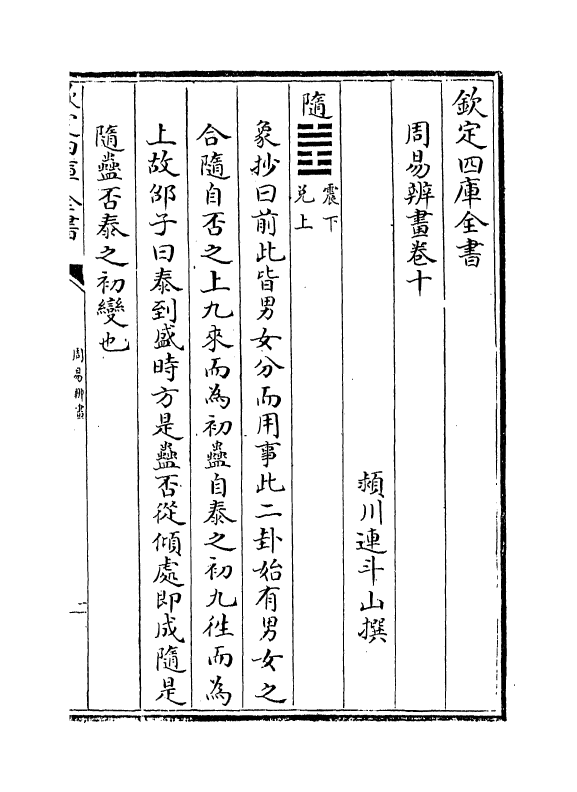 欽定四庫全書
周易辨畫卷十
潁川連斗山撰
隨 震下兌上
彖抄曰前此皆男女分而用事此二卦始有男女之
合隨自否之上九來而為初蠱自泰之初九徃而為
上故邵子曰泰到盛時方是蠱否從傾處即成隨是
隨蠱否泰之初變也
欽定四庫全書
周易辨畫